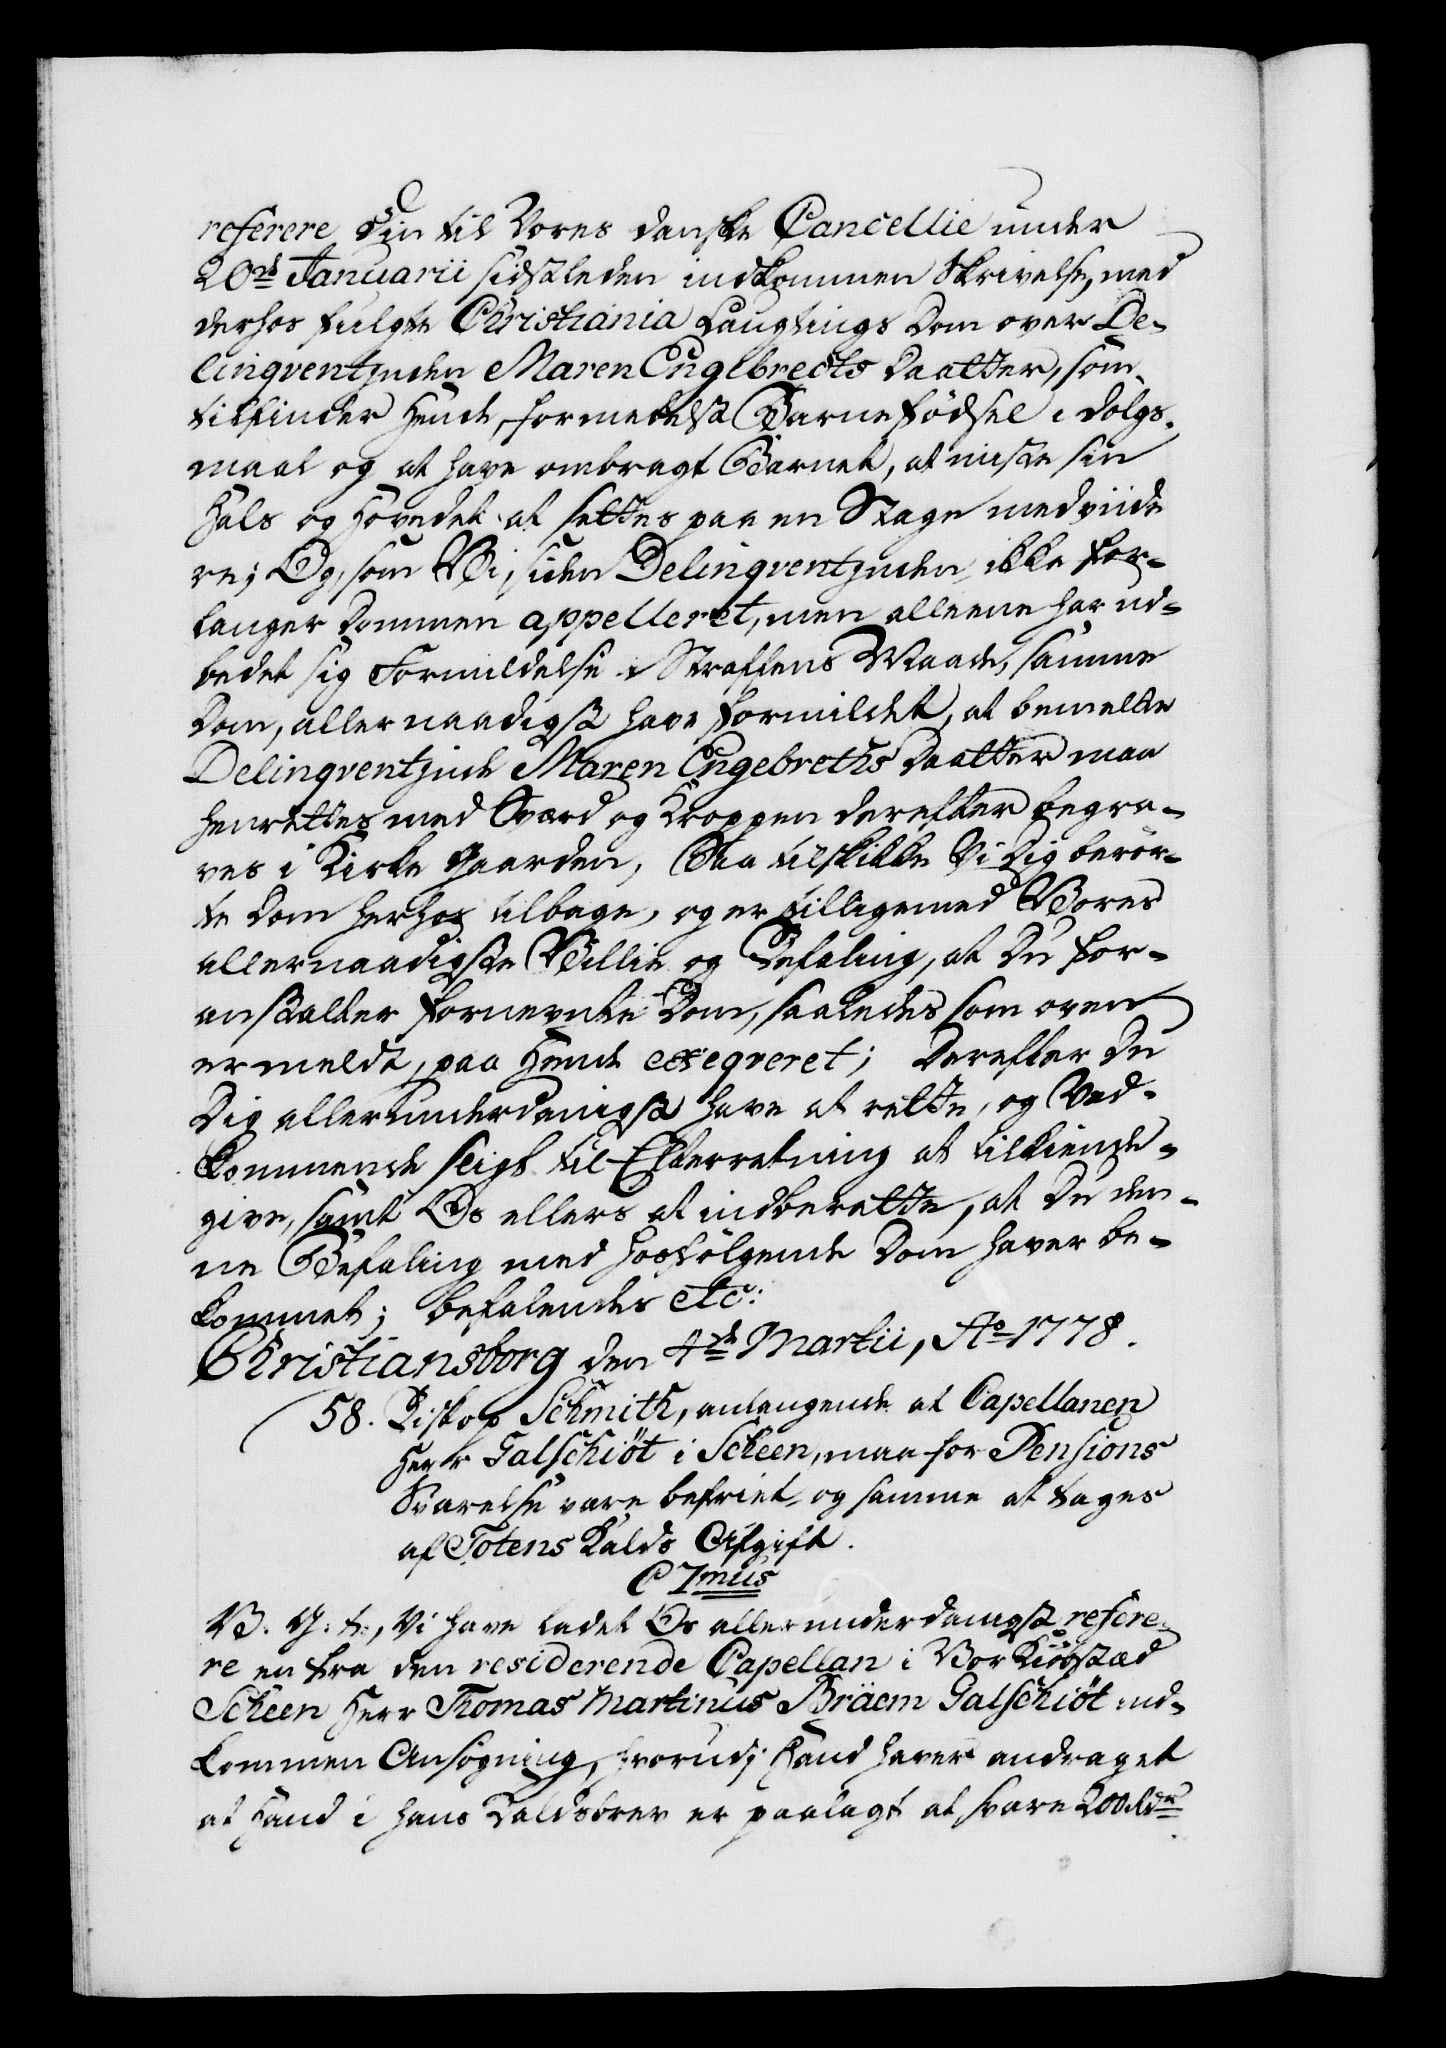 referere Din til Vores danske Cancellie under
20de Januarii sidstleden indkommen Skrivelse, med
derhos fulgte Christiania Laugtings Dom over De-
linqventinden Maren Englbrects Daatter, som
tilfinder hende, formedelst Barnefødsel i Dolgs-
maal og at have ombragt Barnet, at miste sin
Hals og Hovedet at settes paa en Stage med viide-
re; Og, som Vi, siden Delinqventinden ikke for-
langer Dommen appelleret, men alleene har ud-
bedet sig Formildelse i Straffens Maade, samme
Dom, allernaadigst have formildet, at bemelte
Delinqventinde Maren Engebreths Daatter maa
henrettes med Sværd og Kroppen derefter begra-
ves i Kirke Gaarden, Saa tilskikke Vi Dig berør-
te Dom herhos tilbage, og er tilligemed Vores
allernaadigste Villie og Befaling, at Du for-
anstalter fornevnte Dom, saaledes som oven
ermeldt, paa hende exeqveret; Derefter Du
Dig allerunderdanigst have at rette, og Ved-
kommende sligt til Efterretning at tilkiende-
give, samt Os ellers at indberette, at Du den-
ne Befaling med hosfølgende Dom haver be-
kommet; befalendes etc:
Christiansborg den 4de Martii, Ao 1778.
58. Biskop Schmith, anlangende at Capellanen
Herr Galschiöt i Scheen, maa for Pensions
Svarelse være befriet, og samme at tages
af Totens Kalds Afgift.
C 7mus
V. G. t., Vi have ladet Os allerunderdanigst refere-
re en fra den residerende Capellan i Vor Kiöbstæd
Scheen Herr Thomas Martinus Bräem Galschiöt ind-
kommen Ansøgning, hvorudj Hand haver andraget
at Hand i hans Kaldsbrev er paalagt at svare 200 Rdr